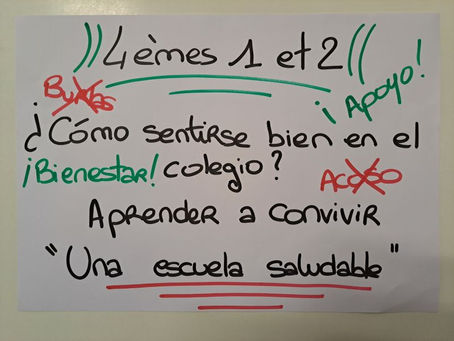 4èmes 1 et 2
Burlas
¡Apoyo!
¿Cómo sentirse bien en el
¡Bienestar! colegio?
Acoso
Aprender a convivir
"Una escuela saludable"